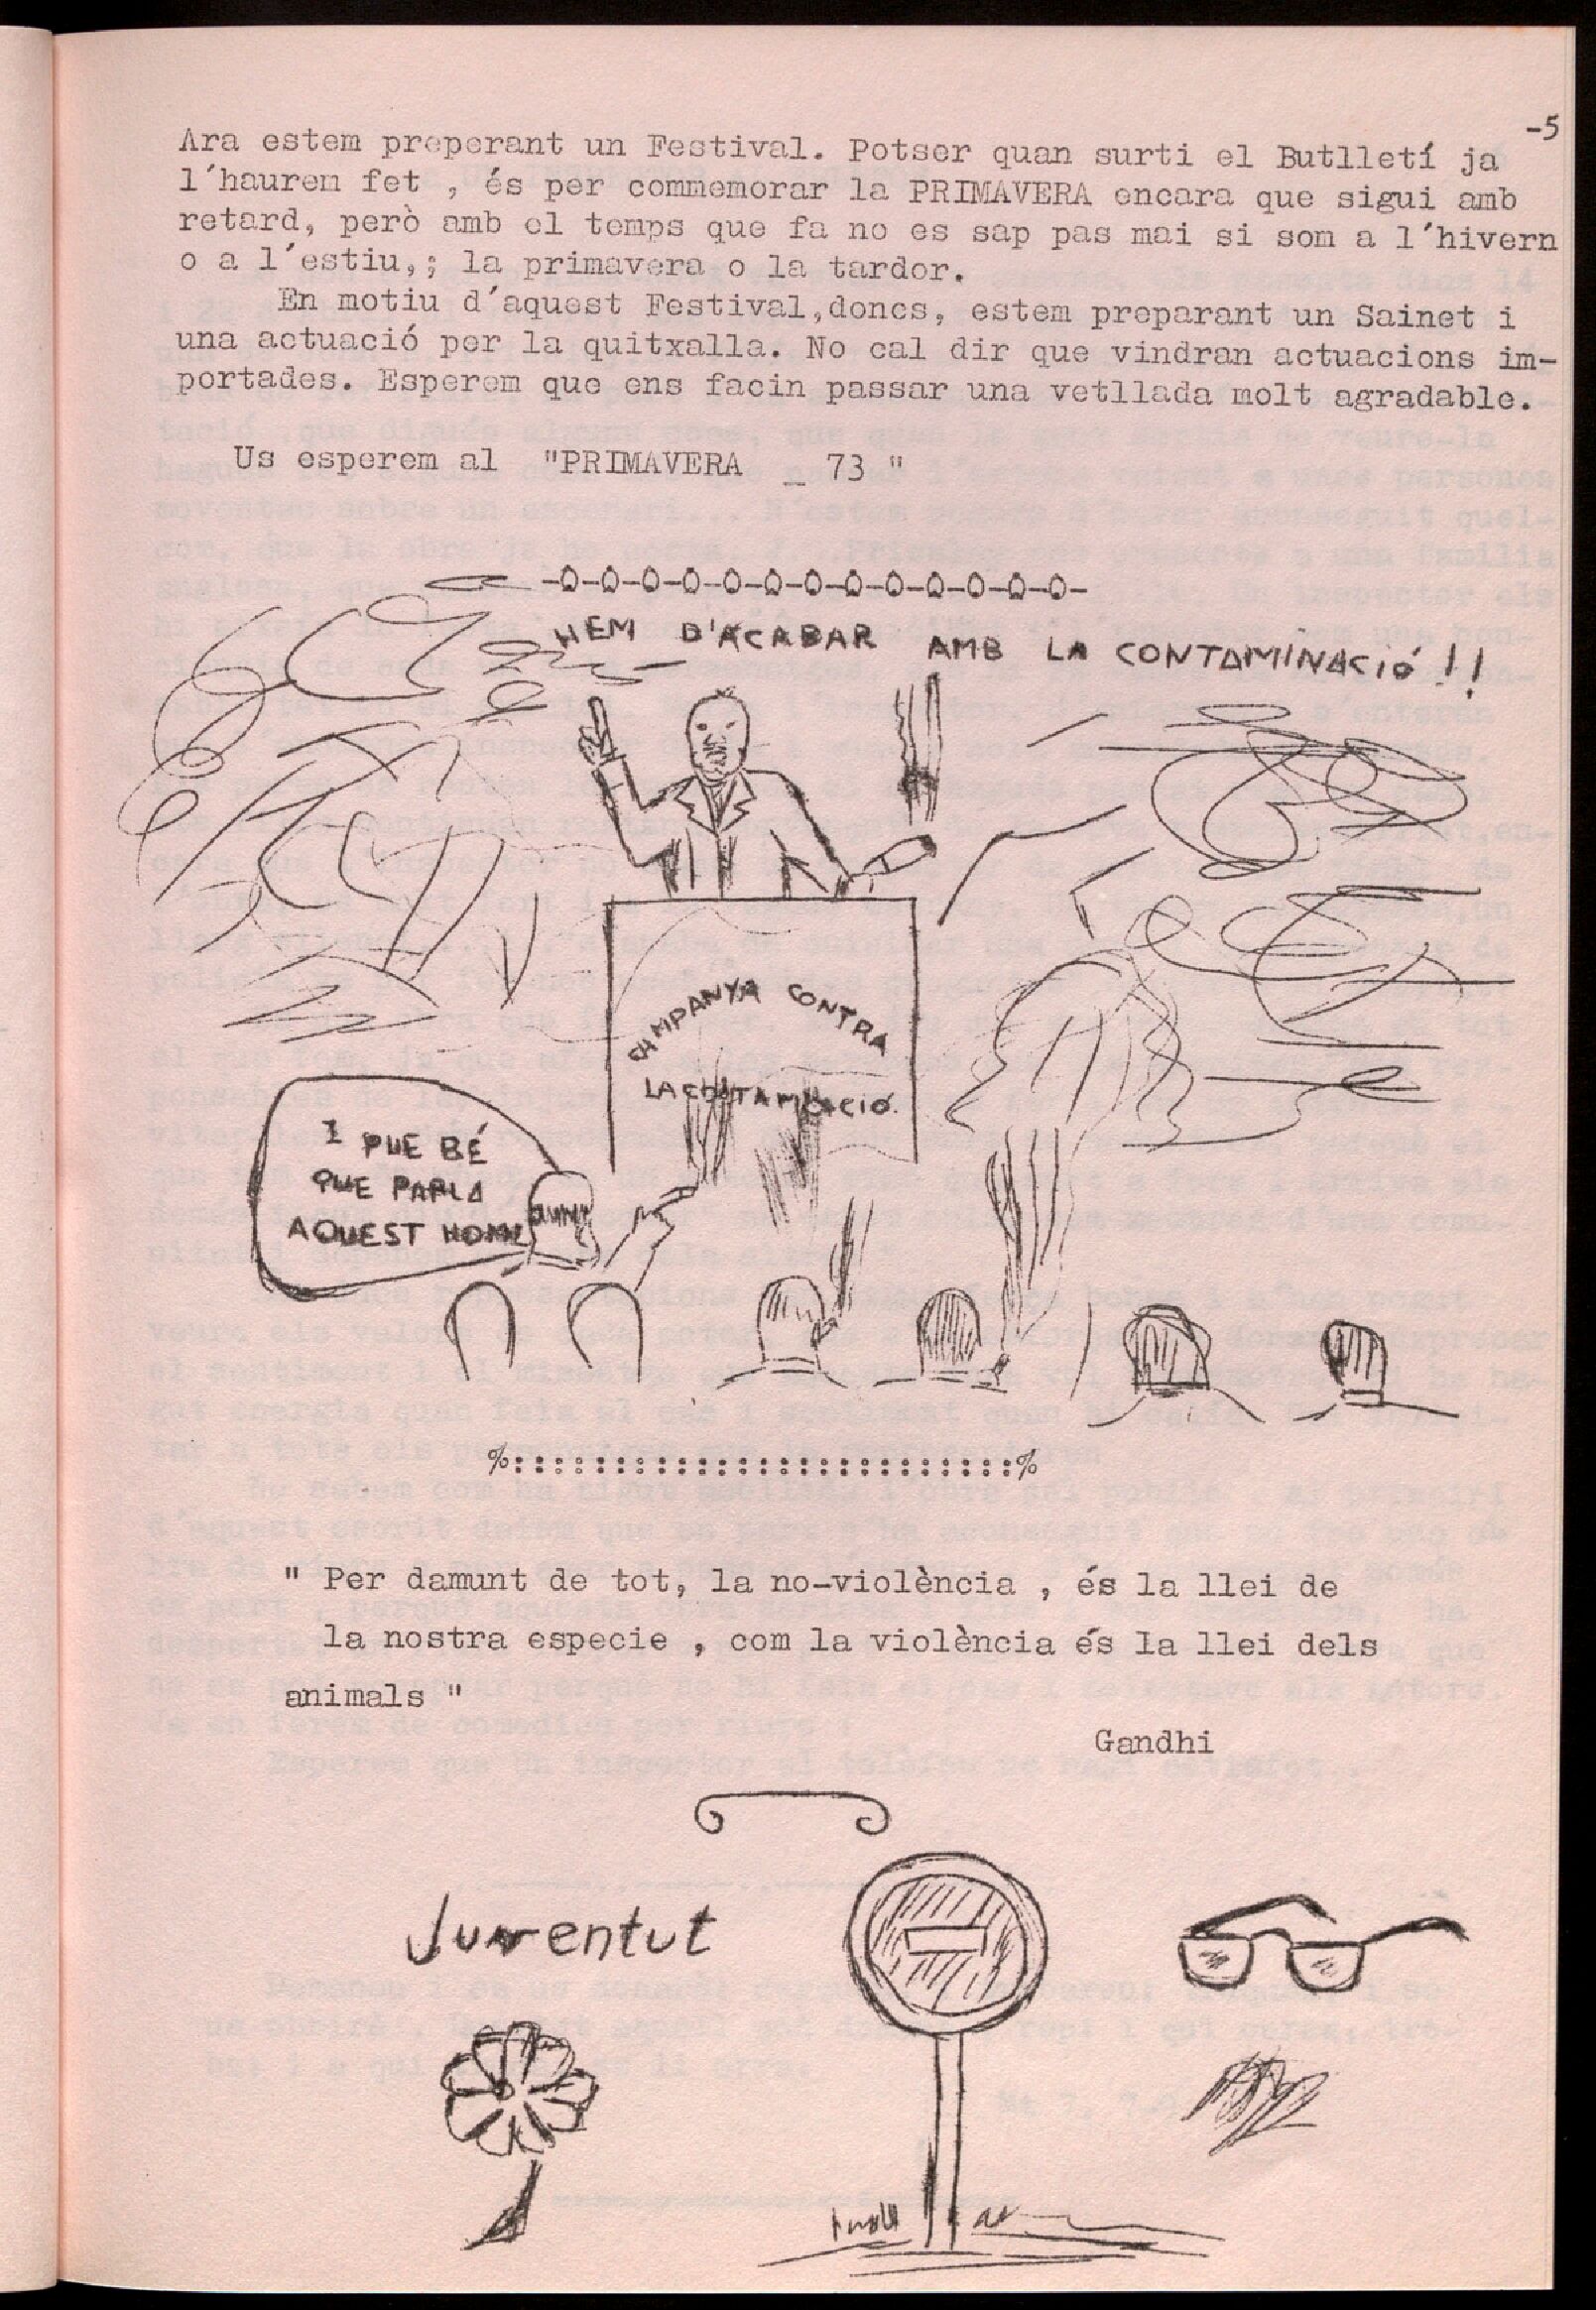 -5
Ara estem preparant un Festival. Potser quan surti el Butlletí ja
l'haurem fet , és per commemorar la PRIMAVERA encara que sigui amb
retard, però amb el temps que fa no es sap pas mai si som a l'hivern
o a l'estiu,; la primavera o la tardor.
En motiu d'aquest Festival,doncs, estem preparant un Sainet i
una actuació per la quitxalla. No cal dir que vindran actuacions im-
portades. Esperem que ens facin passar una vetllada molt agradable.
Us esperem al "PRIMAVERA _ 73 "
-O-O-O-O-O-O-O-O-O-O-O-O-O-
HEM D'ACABAR AMB LA CONTAMINACIÓ!!
CAMPANYA CONTRA
LA CONTAMINACIÓ.
I QUE BÉ
QUE PARLA
AQUEST HOME
%::::::::::::::::::::::::::%
" Per damunt de tot, la no-violència , és la llei de
la nostra especie , com la violència és la llei dels
animals "
Gandhi
Juventut